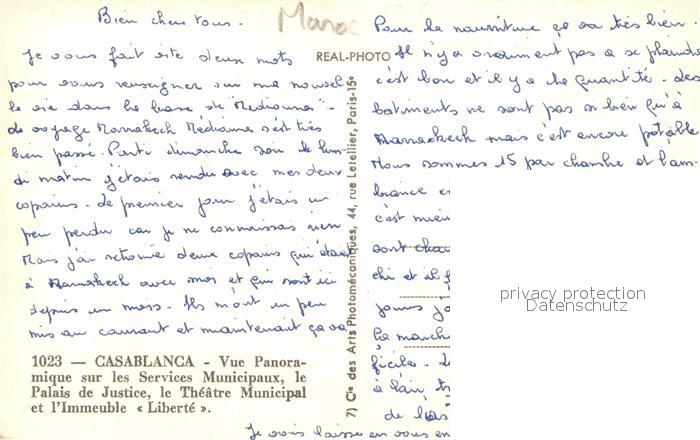 Bien chers tous -
Maroc
Je vous fait vite deux mots
pour vous renseigner sur ma nouvelle
vie dans la base de "Mediouna" -
de voyage Marrakech Médiouna s'est très
bien passé. Parti dimanche soir le lun-
di matin j'étais rendu avec mes deux
copains - de premier jour j'étais un
peu perdu car je ne connaissais rien
Mais j'ai retrouvé deux copains qui étaient
à Marrakech avec moi et qui sont ici
depuis un mois - Ils m'ont un peu
mis au courant et maintenant ça va
1023 — CASABLANCA - Vue Panora-
mique sur les Services Municipaux, le
Palais de Justice, le Théâtre Municipal
et l'Immeuble « Liberté ».
REAL-PHOTO
7) Cie des Arts Photomécaniques, 44, rue Letellier, Paris-15e
Pour la nourriture ça va très bien -
Il n'y a vraiment pas a se plaindre
c'est bon et il y a la quantité - des
batiments ne sont pas si bien qu'à
Marrakech mais c'est encore potable
Nous sommes 15 par chambre et l'am-
biance en
c'est mieu
sont
chi et il f
jours jo
la march
facile -
à l'air, tr
de
Je vous laisse en vous en
privacy protection
Datenschutz